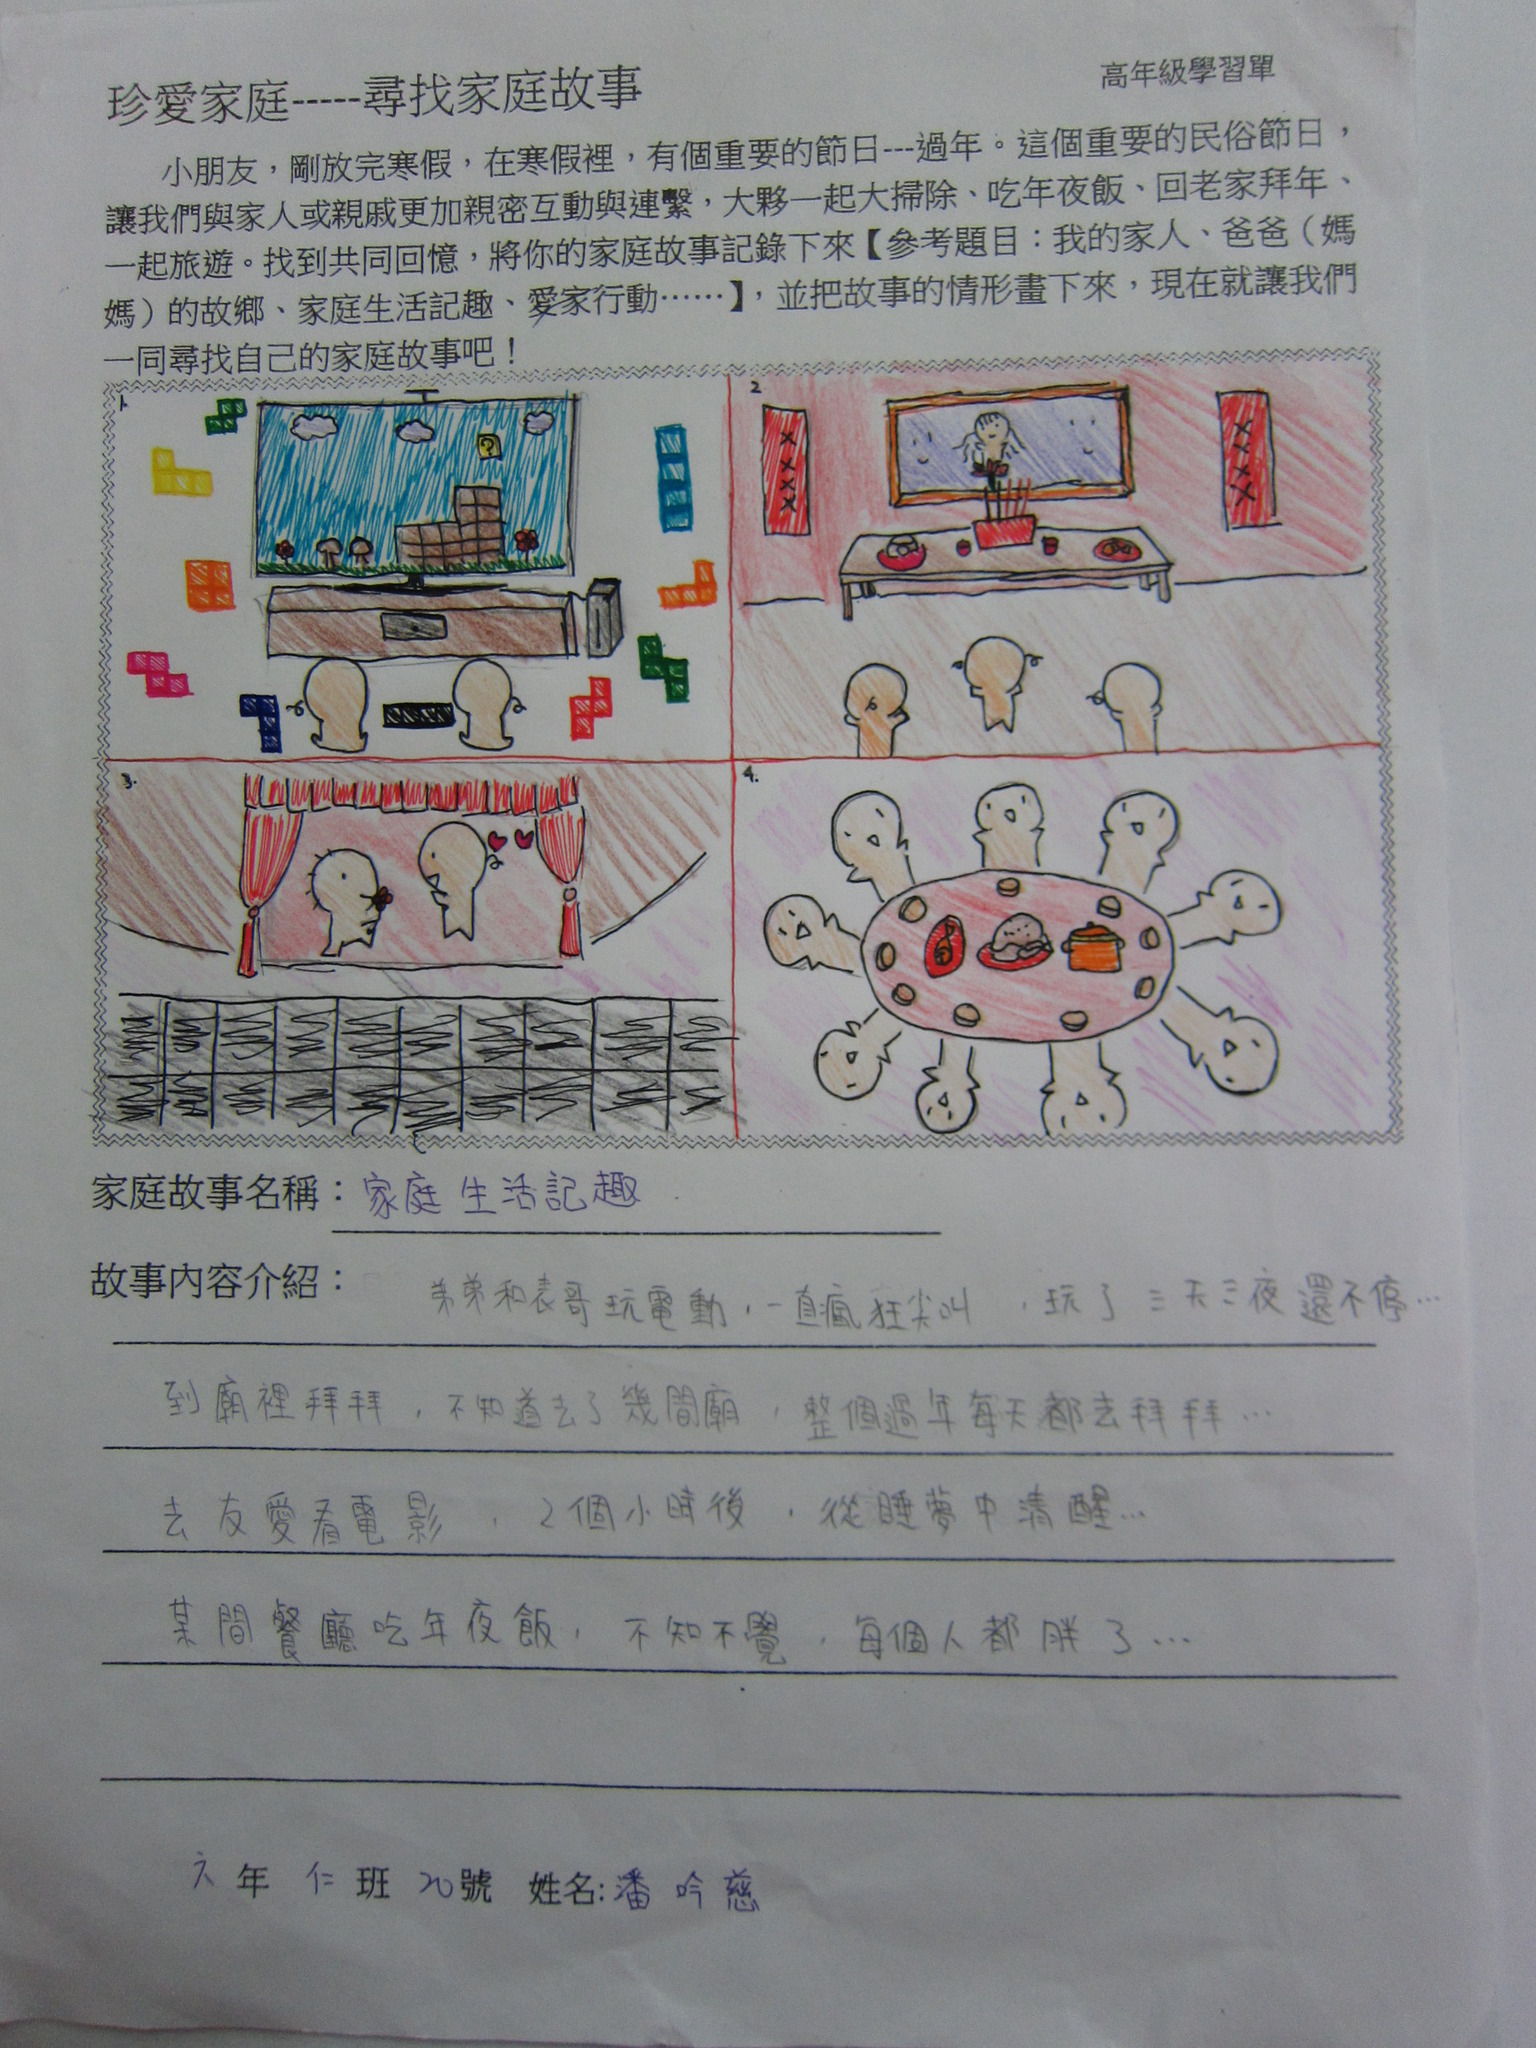 珍愛家庭-----尋找家庭故事
高年級學習單
小朋友，剛放完寒假，在寒假裡，有個重要的節日---過年。這個重要的民俗節日，
讓我們與家人或親戚更加親密互動與連繫，大夥一起大掃除、吃年夜飯、回老家拜年、
一起旅遊。找到共同回憶，將你的家庭故事記錄下來【參考題目：我的家人、爸爸（媽
媽）的故鄉、家庭生活記趣、愛家行動……】，並把故事的情形畫下來，現在就讓我們
一同尋找自己的家庭故事吧！
1.
2
?
3.
4.
家庭故事名稱：家庭生活記趣
故事內容介紹：弟弟和表哥玩電動，一直瘋狂尖叫，玩了三天三夜還不停…
到廟裡拜拜，不知道去了幾間廟，整個過年每天都去拜拜…
去友愛看電影，2個小時後，從睡夢中清醒…
某間餐廳吃年夜飯，不知不覺，每個人都胖了…
六年仁班20號 姓名:潘吟慈